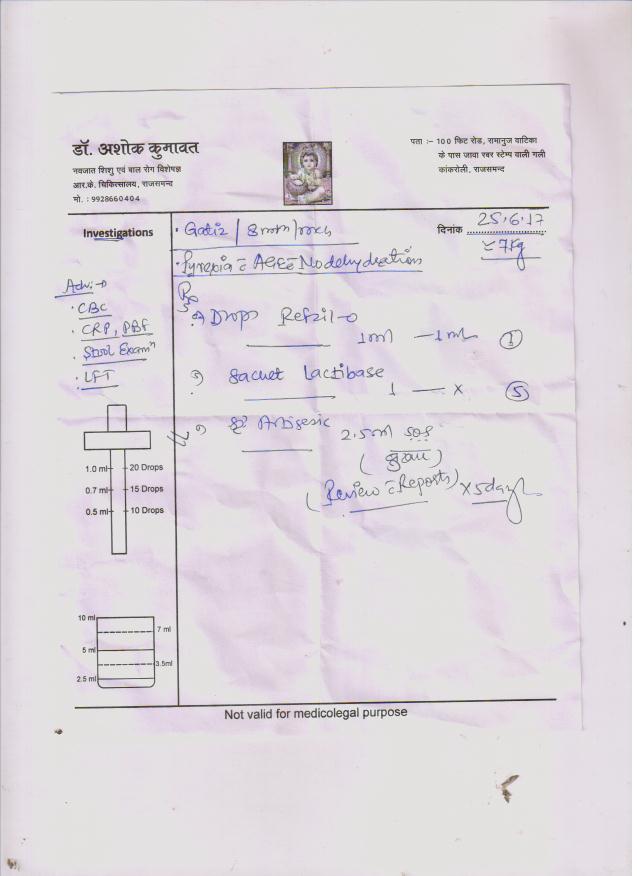 डॉ. अशोक कुमावत
नवजात शिशु एवं बाल रोग विशेषज्ञ
आर.के. चिकित्सालय, राजसमन्द
मो. : 9928660404
पता :– 100 फिट रोड, रामानुज वाटिका
के पास जावा रबर स्टेम्प वाली गली
कांकरोली, राजसमन्द
दिनांक 25.6.17
7kg
Investigations
Adv:-
CBC
CRP, PBF
Stool Examn
LFT
Pyrexia c̄ AGE c̄ No dehydration
Rx
Drops
1ml — 1ml ①
Sachet Lactibase
1 — x ⑤
2.5ml SOS
(बुखार)
(Review c̄ Reports) x 5days
1.0 ml 20 Drops
0.7 ml 15 Drops
0.5 ml 10 Drops
10 ml
7 ml
5 ml
3.5ml
2.5 ml
Not valid for medicolegal purpose